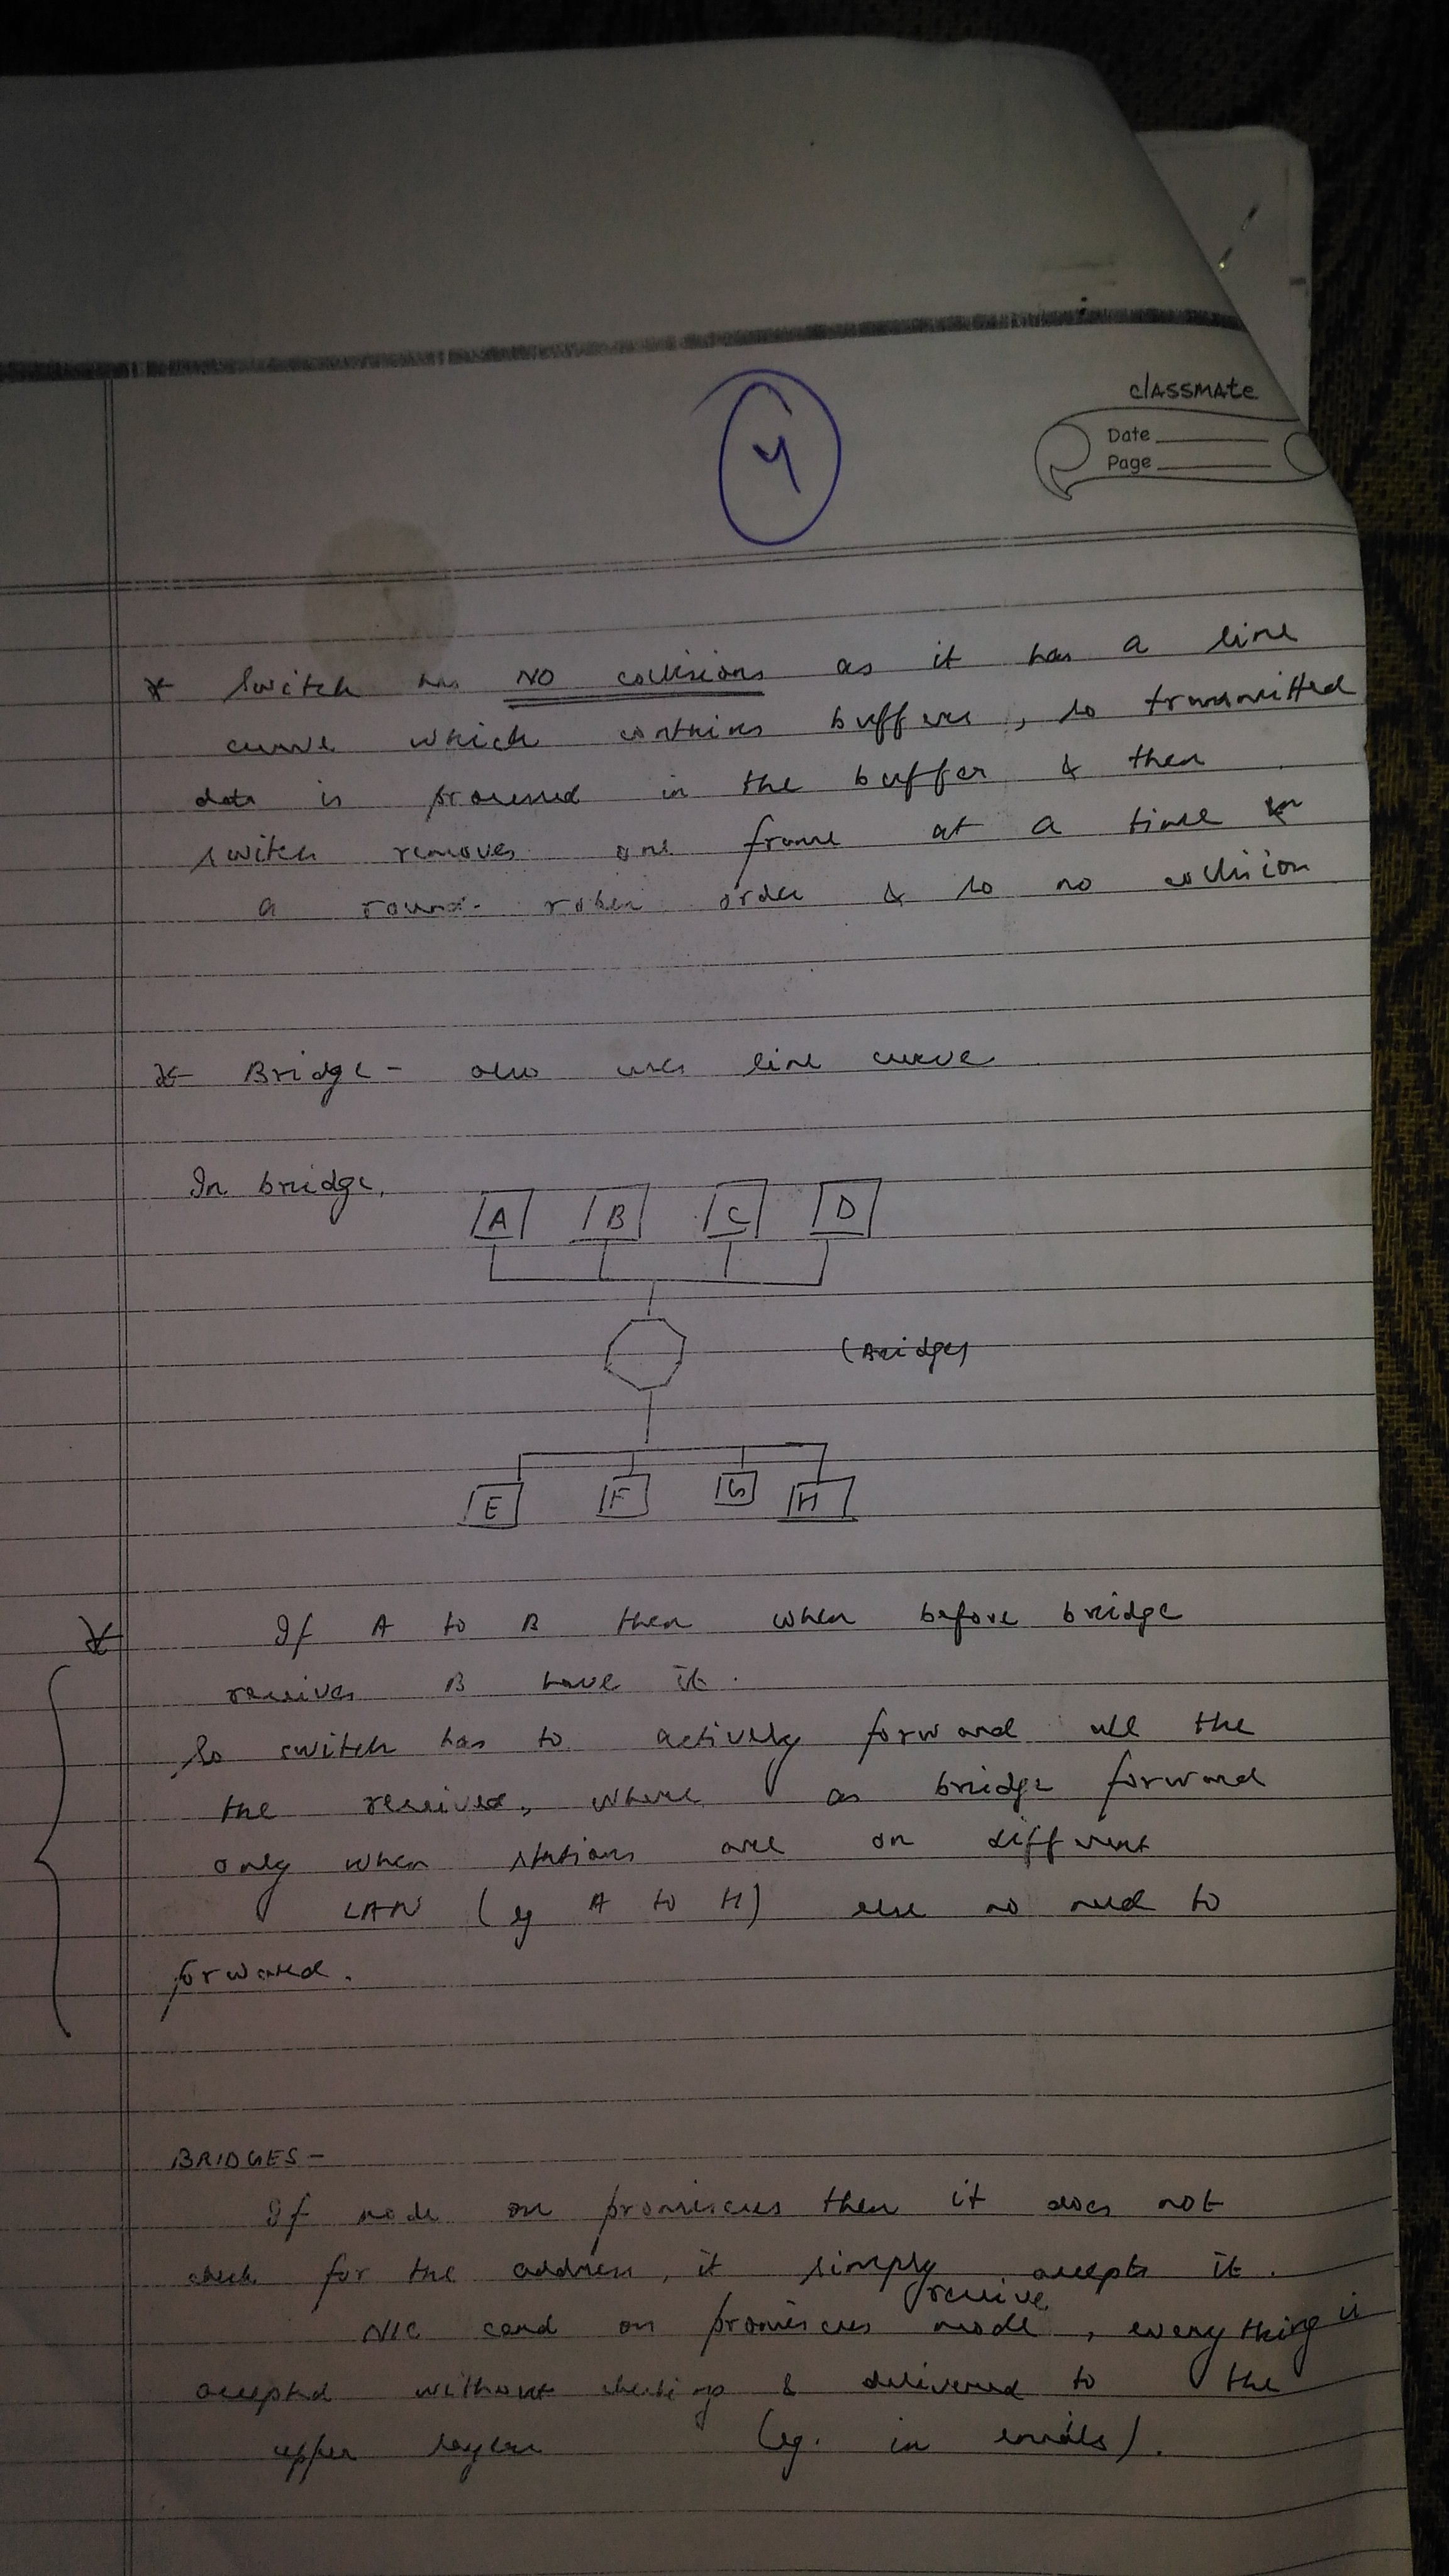 classmate
Date
Page
4
* Switch has NO collisions as it has a line
curve which contains buffers, so transmitted
data is processed in the buffer & then
switch removes one frame at a time in
a round-roben order & so no collision
* Bridge - also uses line curve
In bridge,
A B C D
(Bridge)
E F G H
* If A to B then when before bridge
receives B have it.
So switch has to actively forward all the
the received, where as bridge forward
only when stations are on different
LAN (eg A to H) else no need to
forward.
BRIDGES -
If node on promiscus then it does not
check for the address, it simply accepts it.
receive
NIC card on promiscus mode, everything is
accepted without checking & delivered to the
upper layer (eg. in emails).